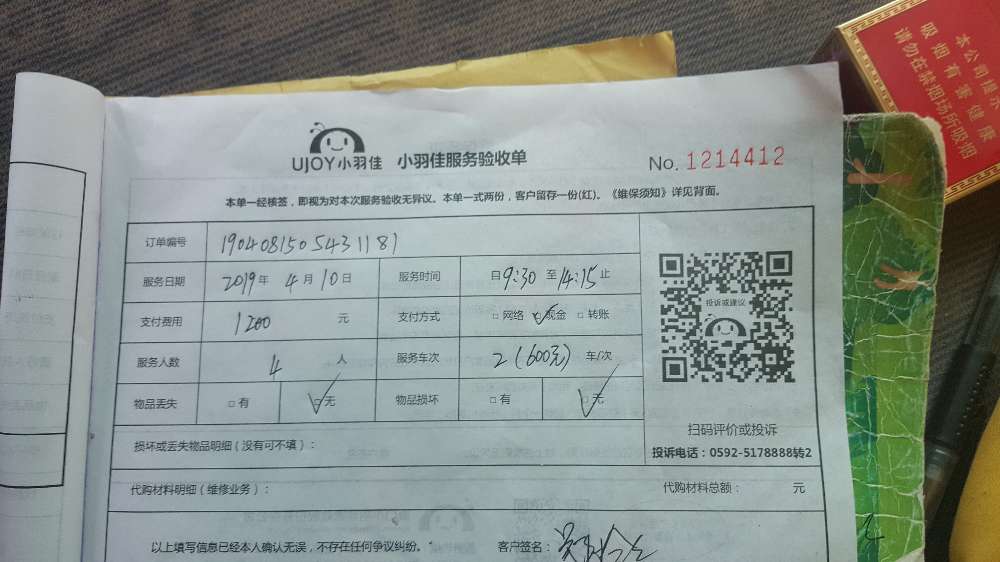 UJOY小羽佳 小羽佳服务验收单 No. 1214412
本单一经核签，即视为对本次服务验收无异议。本单一式两份，客户留存一份(红)。《维保须知》详见背面。
订单编号 19040815054 31181
服务日期 2019年 4月10日 服务时间 自9:30 至 14:15止
支付费用 1200 元 支付方式 □网络 ☑现金 □转账
服务人数 4 人 服务车次 2(600元) 车/次
物品丢失 □有 ☑无 物品损坏 □有 ☑无
损坏或丢失物品明细（没有可不填）：
投诉或建议
扫码评价或投诉
投诉电话：0592-5178888转2
代购材料明细（维修业务）： 代购材料总额： 元
以上填写信息已经本人确认无误，不存在任何争议纠纷。 客户签名：
本公司提示
吸烟有害健康
请勿在禁烟场所吸烟